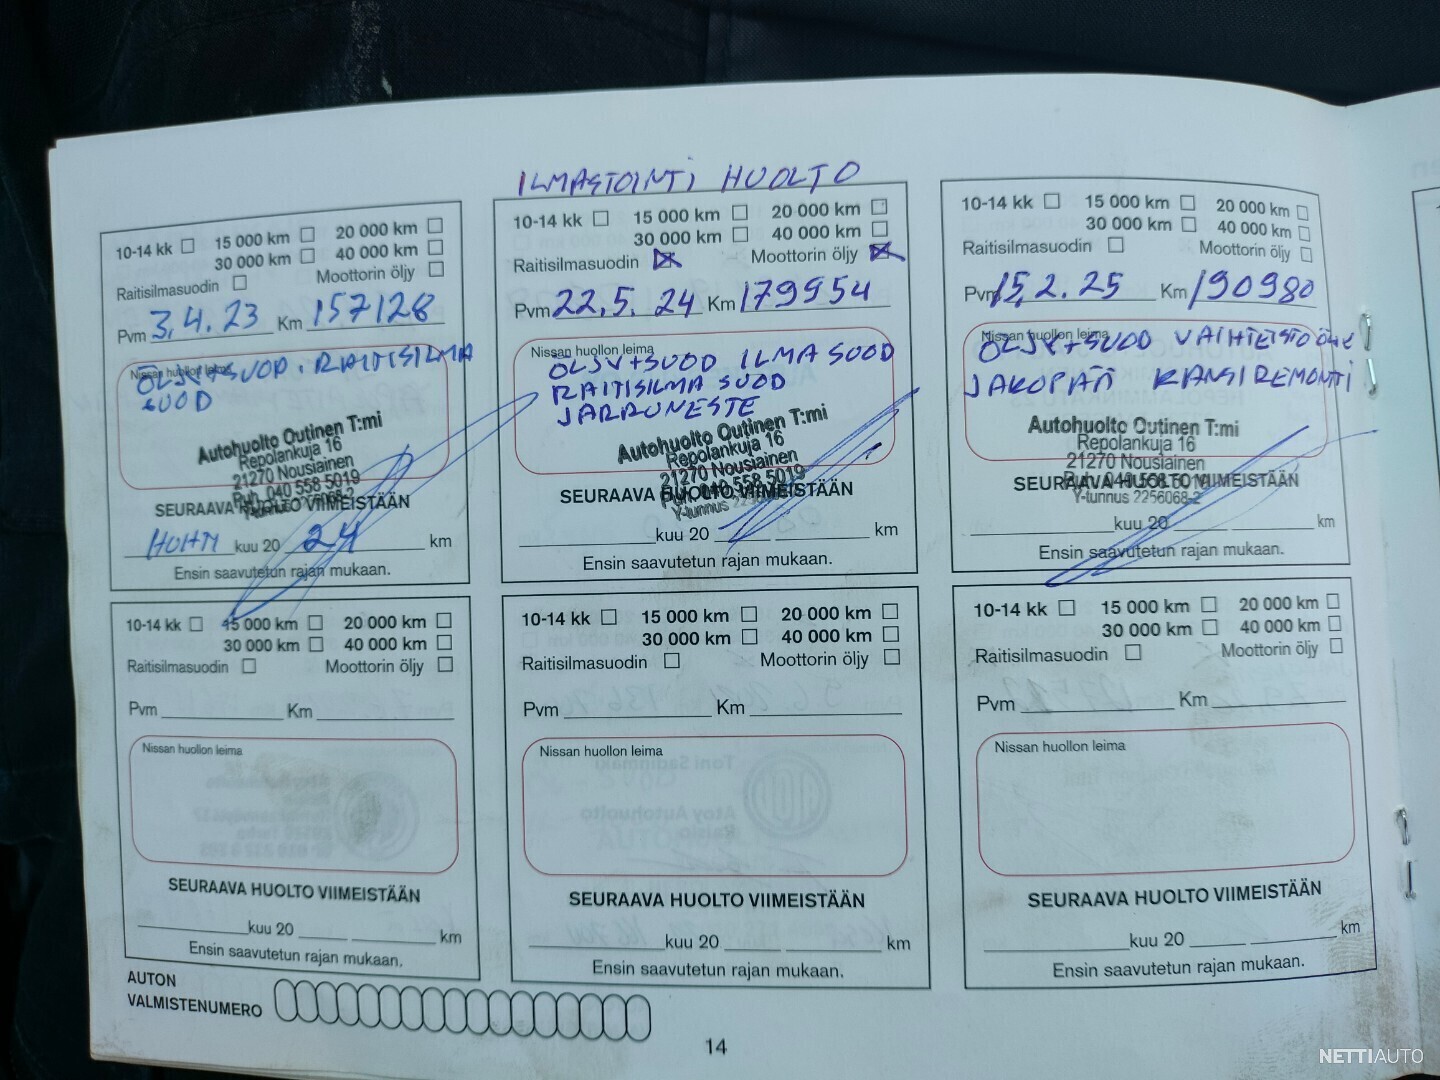 ILMASTOINTI HUOLTO
10-14 kk 15 000 km 20 000 km
30 000 km 40 000 km
Raitisilmasuodin Moottorin öljy
Pvm 3.4.23 Km 157128
Nissan huollon leima
ÖLJY+SUOD. RAITISILMA
SUOD
Autohuolto Outinen T:mi
Repolankuja 16
21270 Nousiainen
Puh. 040 558 5019
Y-tunnus 2256068-2
SEURAAVA HUOLTO VIIMEISTÄÄN
HUHTI kuu 20 24 km
Ensin saavutetun rajan mukaan.
10-14 kk 15 000 km 20 000 km
30 000 km 40 000 km
Raitisilmasuodin Moottorin öljy
Pvm 22.5.24 Km 179954
Nissan huollon leima
ÖLJY+SUOD ILMA SUOD
RAITISILMA SUOD
JARRUNESTE
Autohuolto Outinen T:mi
Repolankuja 16
21270 Nousiainen
Puh. 040 558 5019
Y-tunnus 2256068-2
SEURAAVA HUOLTO VIIMEISTÄÄN
kuu 20 km
Ensin saavutetun rajan mukaan.
10-14 kk 15 000 km 20 000 km
30 000 km 40 000 km
Raitisilmasuodin Moottorin öljy
Pvm 15.2.25 Km 190980
Nissan huollon leima
ÖLJY+SUOD VAIHTEISTOÖLJY
JAKOPÄÄ KANSIREMONTI
Autohuolto Outinen T:mi
Repolankuja 16
21270 Nousiainen
Puh. 040 558 5019
Y-tunnus 2256068-2
SEURAAVA HUOLTO VIIMEISTÄÄN
kuu 20 km
Ensin saavutetun rajan mukaan.
10-14 kk 15 000 km 20 000 km
30 000 km 40 000 km
Raitisilmasuodin Moottorin öljy
Pvm Km
Nissan huollon leima
SEURAAVA HUOLTO VIIMEISTÄÄN
kuu 20 km
Ensin saavutetun rajan mukaan.
10-14 kk 15 000 km 20 000 km
30 000 km 40 000 km
Raitisilmasuodin Moottorin öljy
Pvm Km
Nissan huollon leima
SEURAAVA HUOLTO VIIMEISTÄÄN
kuu 20 km
Ensin saavutetun rajan mukaan.
10-14 kk 15 000 km 20 000 km
30 000 km 40 000 km
Raitisilmasuodin Moottorin öljy
Pvm Km
Nissan huollon leima
SEURAAVA HUOLTO VIIMEISTÄÄN
kuu 20 km
Ensin saavutetun rajan mukaan.
AUTON
VALMISTENUMERO
14
NETTIAUTO